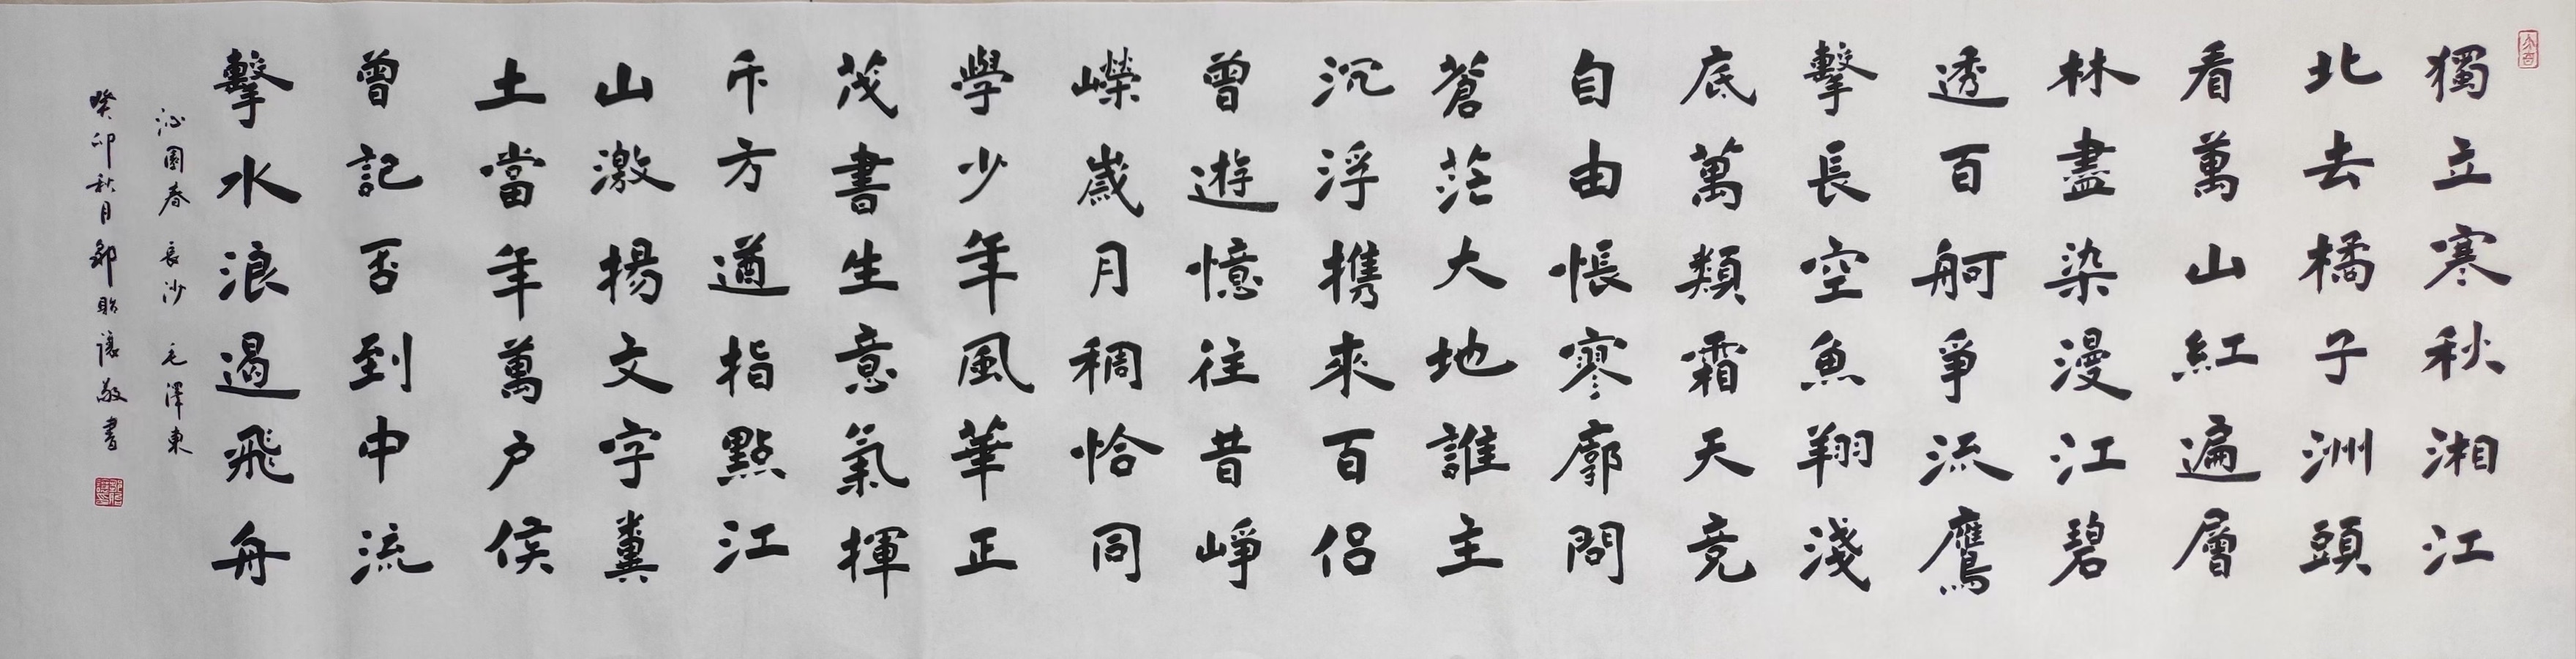 獨立寒秋湘江
北去橘子洲頭
看萬山紅遍層
林盡染漫江碧
透百舸爭流鷹
擊長空魚翔淺
底萬類霜天竞
自由悵寥廓問
蒼茫大地誰主
沉浮携來百侣
曾遊憶往昔崢
嶸歲月稠恰同
學少年風華正
茂書生意氣揮
斥方遒指點江
山激揚文字糞
土當年萬户侯
曾記否到中流
擊水浪遏飛舟
沁園春 長沙 毛澤東
癸卯秋月 讓敬書